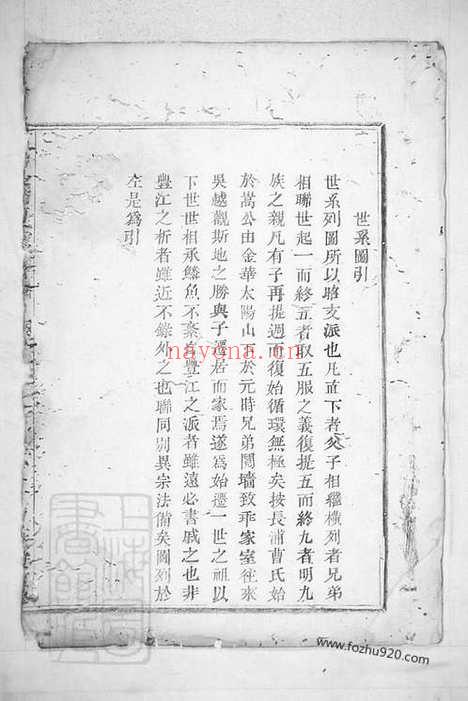 世系圖引
世系列圖所以晰支派也凡直下者父子相繼橫列者兄弟
相聯世起一而終五者取五服之義復提五而終九者明九
族之親凡有子再提週而復始循環無極矣按長浦曹氏始
於嵩公由金華太陽山下於元時兄弟鬩墻致乖家室往來
吳越觀斯地之勝與子遷居而家焉遂為始遷一世之祖以
下世世相承鱗魚不紊自豐江之派者雖遠必書戚之也非
豐江之析者雖近不錄外之也聯同別異宗法備矣圖列於
左是為引
nayona.cn
www.fozhu920.com